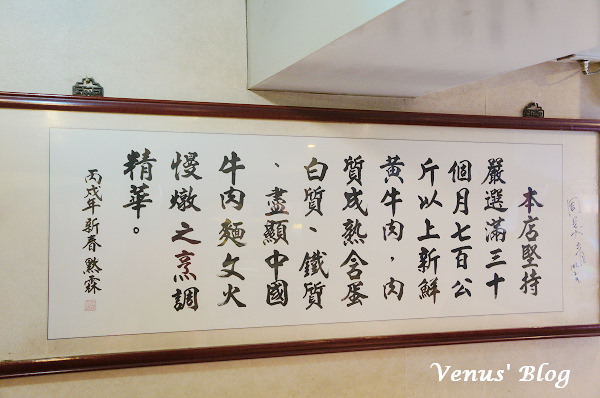 本店堅持
嚴選滿三十
個月七百公
斤以上新鮮
黃牛肉,肉
質成熟含蛋
白質、鐵質
、盡顯中國
牛肉麵文火
慢燉之烹調
精華。
丙戌年新春 黙霖
Venus' Blog